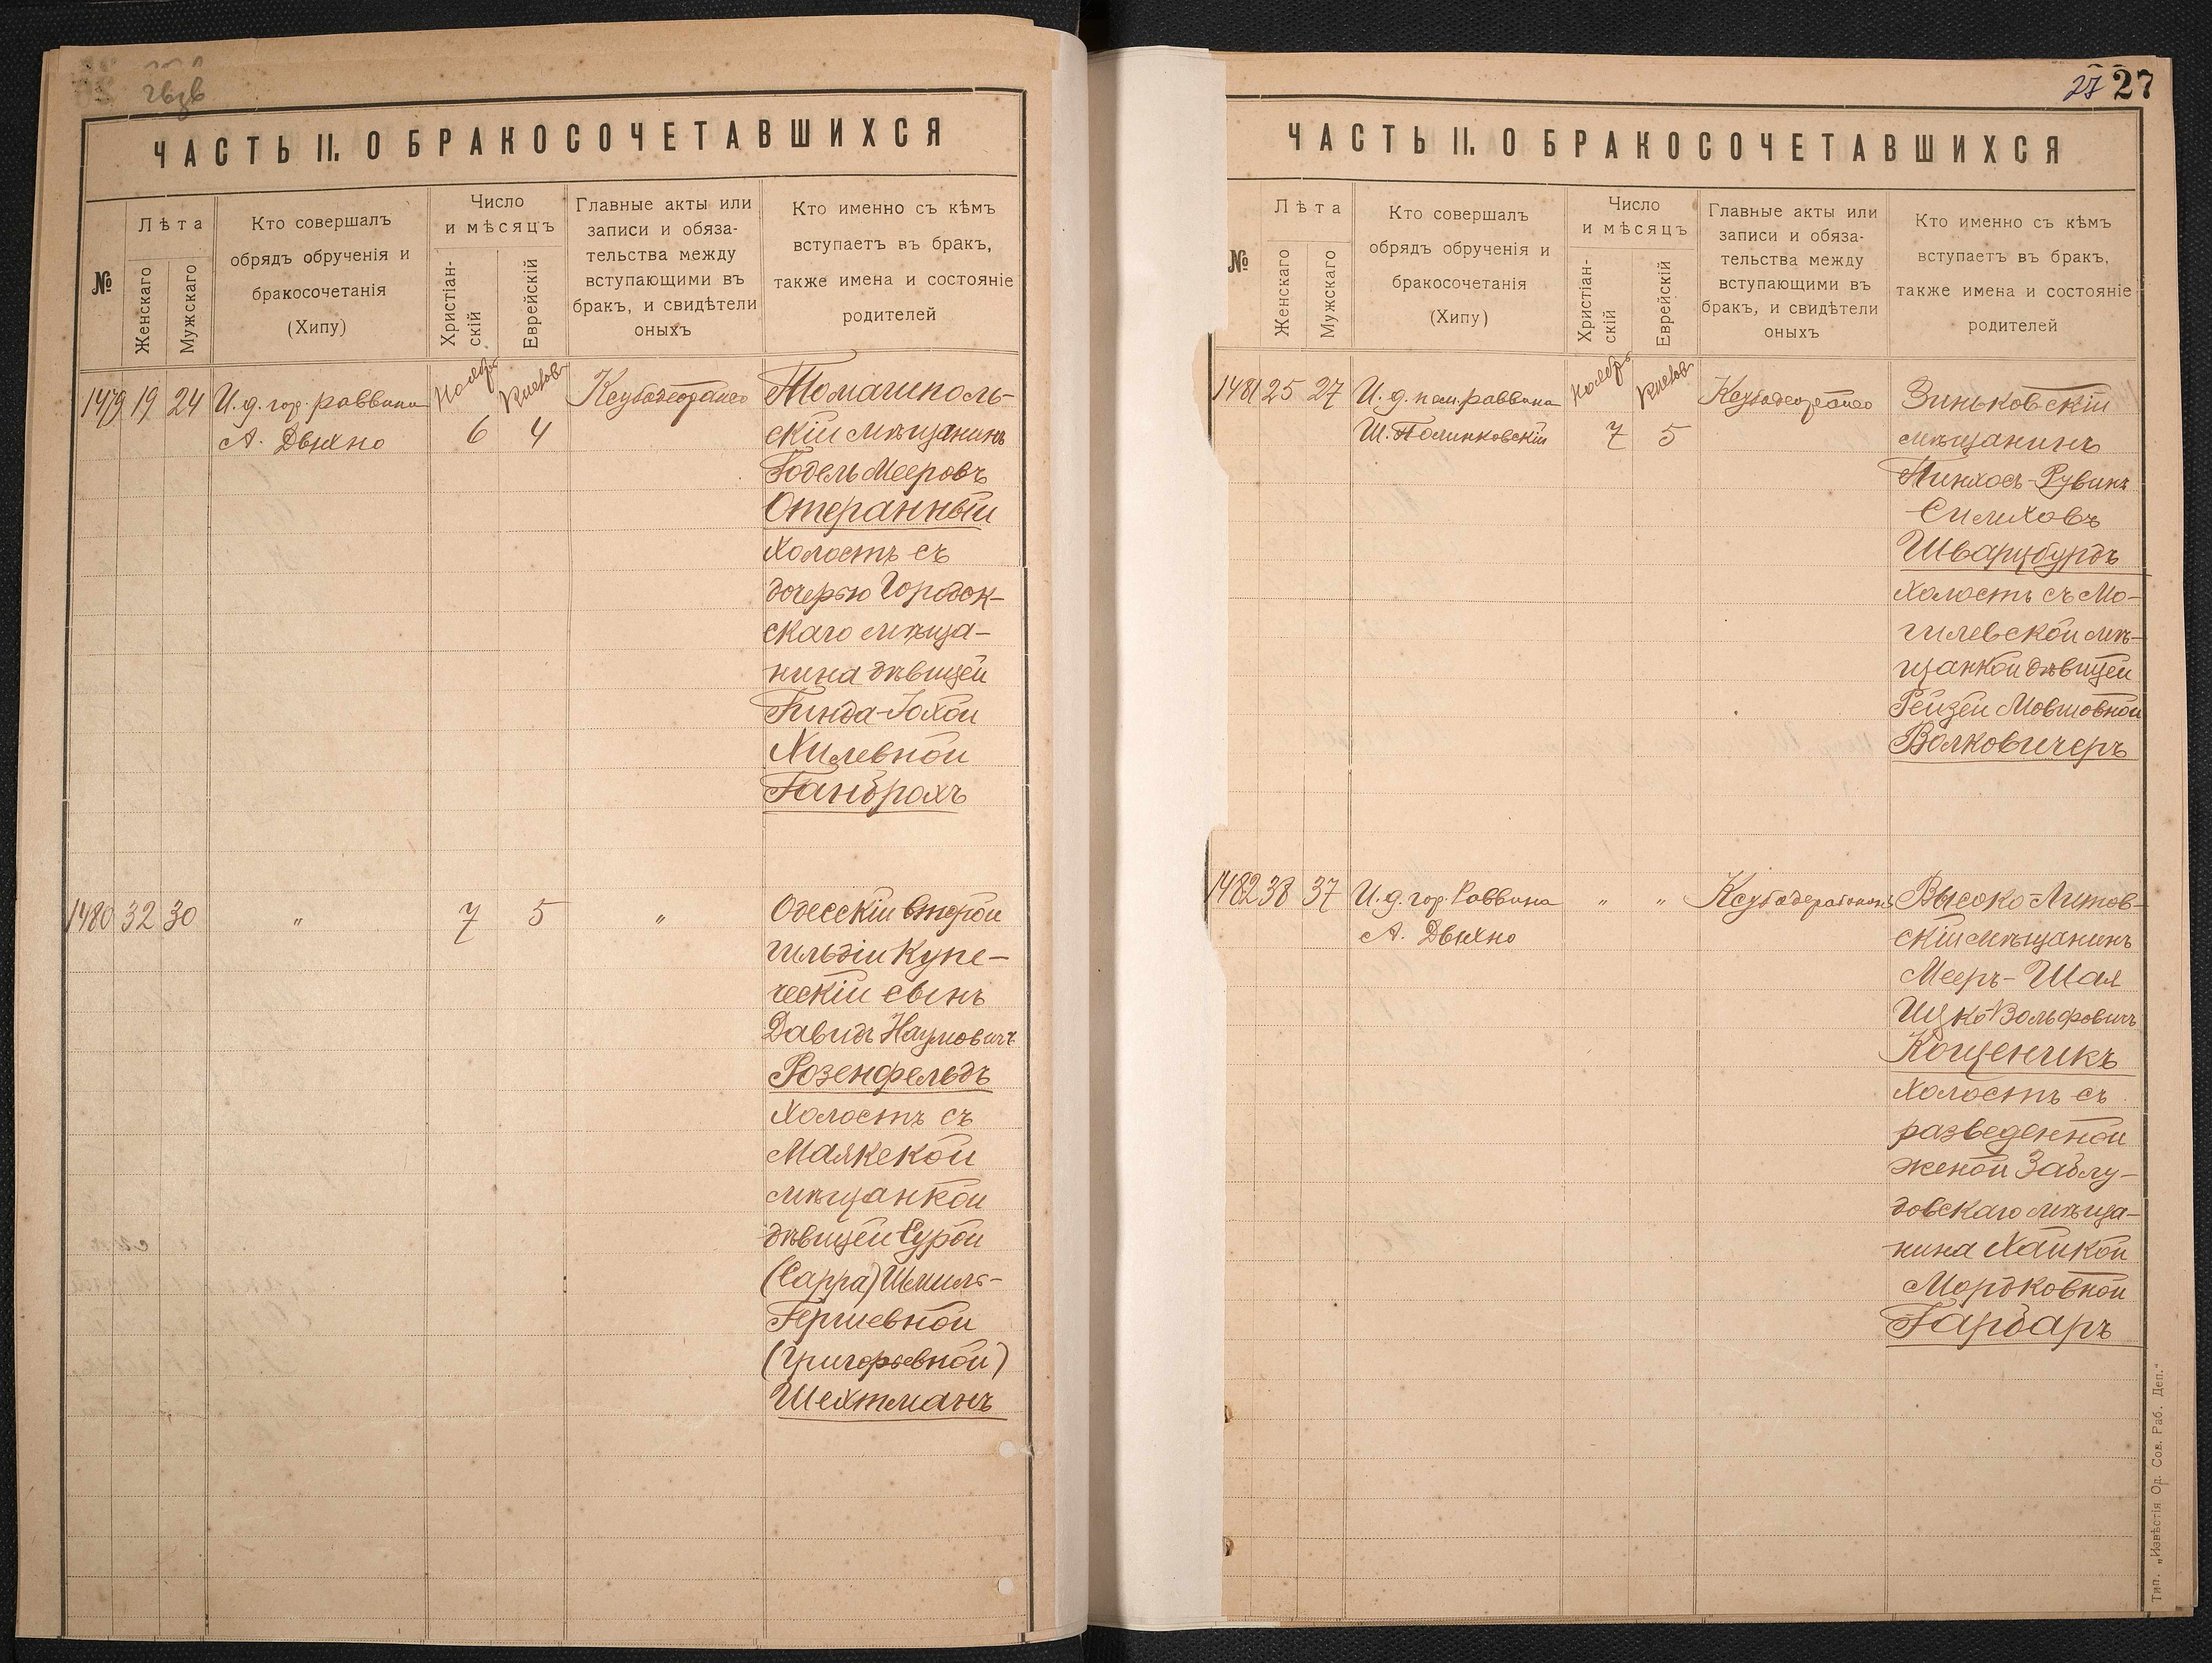 ЧАСТЬ II. О БРАКОСОЧЕТАВШИХСЯ
№
Лѣта
Женскаго
Мужскаго
Кто совершалъ
обрядъ обрученія и
бракосочетанія
(Хипу)
Число
и мѣсяцъ
Христіан-
скій
Еврейскій
Главные акты или
записи и обяза-
тельства между
вступающими въ
бракъ, и свидѣтели
оныхъ
Кто именно съ кѣмъ
вступаетъ въ бракъ,
также имена и состояніе
родителей
1479 19 24
И. д. гор. раввина
А. Двухно
Ноябрь
6
Кислевъ
4
Томашполь-
скій мѣщанинъ
Годель Мееровъ
Отеранный
холостъ съ
дочерью Городок-
скаго мѣща-
нина дѣвицей
Гинда-Гохой
Хилевной
Ганбрахъ
1480 32 30 " 7 5 "
Одесскій второй
гильдіи Купе-
ческій сынъ
Давидъ Наумовичъ
Розенфельдъ
холостъ съ
Маякской
мѣщанкой
дѣвицей Сурой
(Сарра) Шмиль-
Гершевной
(Григорьевной)
Шехтманъ
27 27
ЧАСТЬ II. О БРАКОСОЧЕТАВШИХСЯ
№
Лѣта
Женскаго
Мужскаго
Кто совершалъ
обрядъ обрученія и
бракосочетанія
(Хипу)
Число
и мѣсяцъ
Христіан-
скій
Еврейскій
Главные акты или
записи и обяза-
тельства между
вступающими въ
бракъ, и свидѣтели
оныхъ
Кто именно съ кѣмъ
вступаетъ въ бракъ,
также имена и состояніе
родителей
1481 25 27
И. д. пом. раввина
Ш. Полинковскій
Ноябрь
7
Кислевъ
5
Зиньковскій
мѣщанинъ
Пинхосъ-Рувинъ
Симховъ
Шварцбурдъ
холостъ съ Мо-
гилевской мѣ-
щанкой дѣвицей
Рейзей Мовшовной
Волковичеръ
1482 38 37
И. д. гор. Раввина
А. Двухно
" "
Высоко-Литов-
скій мѣщанинъ
Мееръ-Шая
Ицко-Вольфовичъ
Кощеникъ
холостъ съ
разведенной
женой Заблу-
довскаго мѣща-
нина Хайкой
Мордковной
Гарбаръ
Тип. „Извѣстія Од. Сов. Раб. Деп."